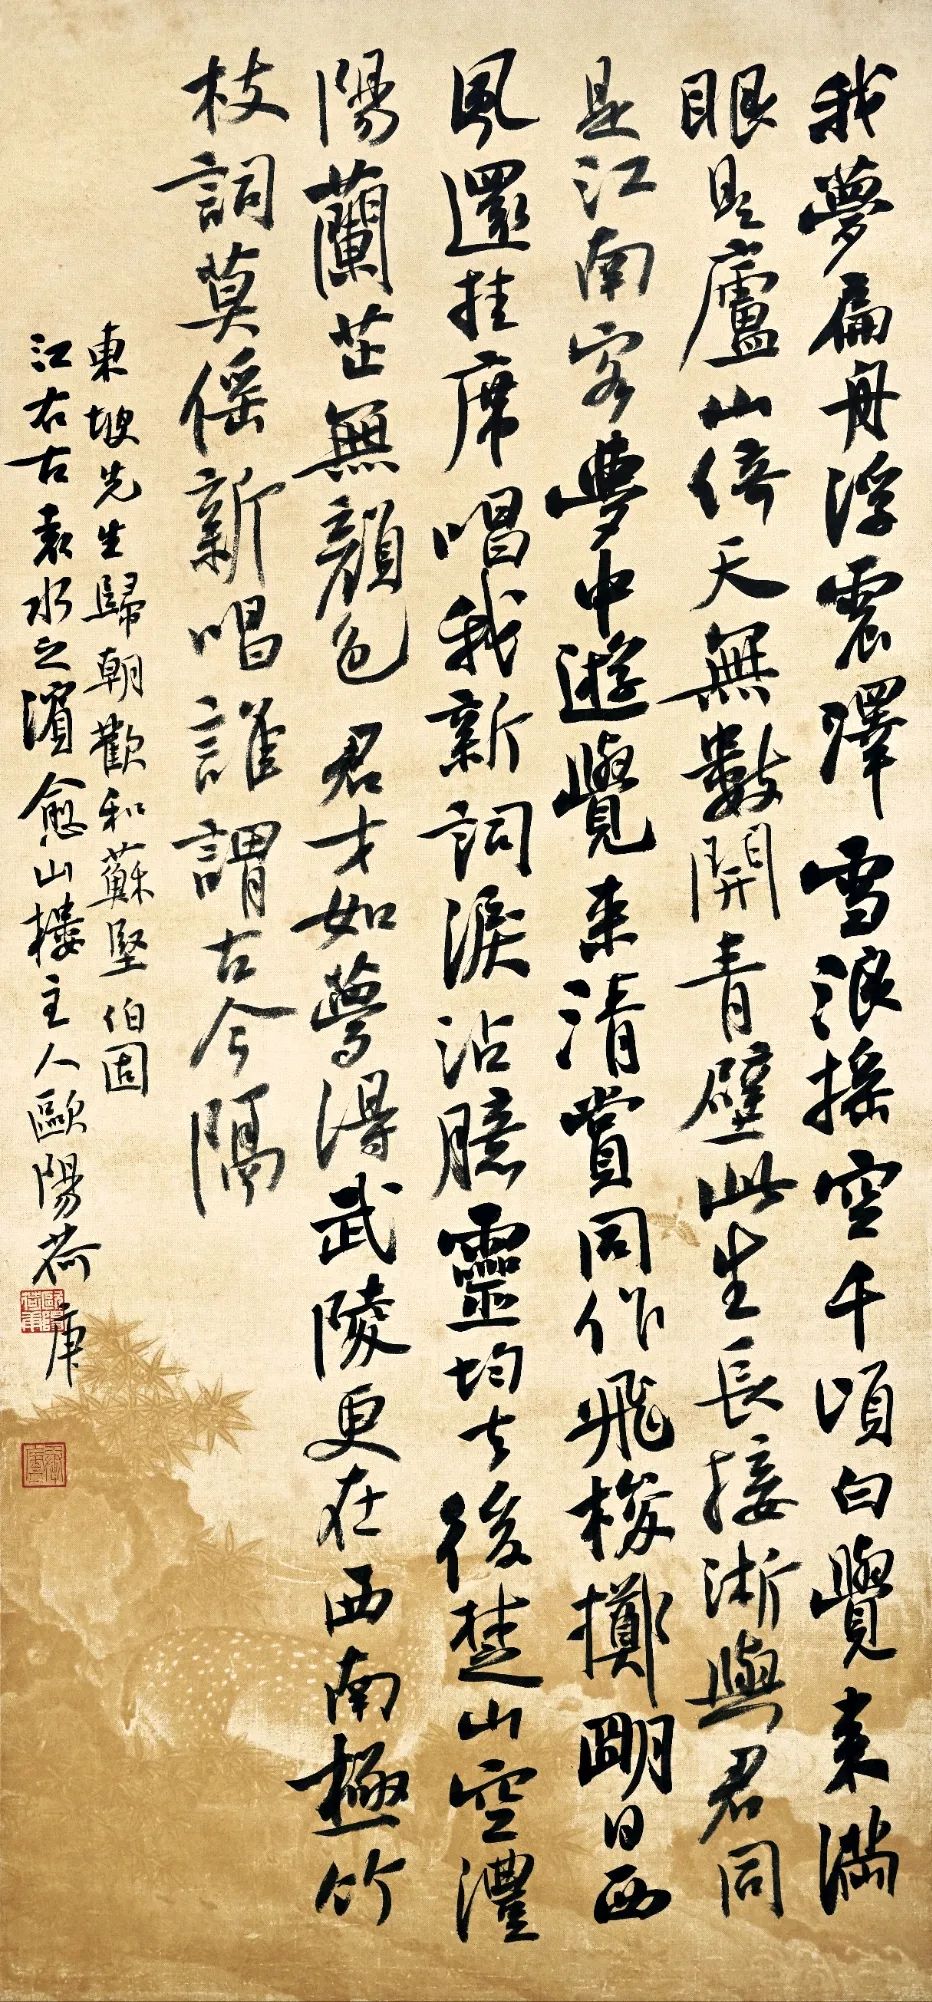 我夢扁舟浮震澤雪浪搖空千頃白覺來滿
眼是廬山倚天無數開青壁此生長接淅與君同
是江南客夢中遊覺來清賞同作飛梭擲明日西
風還挂席唱我新詞淚沾臆靈均去後楚山空澧
陽蘭芷無顏色君才如夢得武陵更在西南極竹
枝詞莫傜新唱誰謂古今隔
東坡先生歸朝歡和蘇堅伯固
江右古袁水之濱愈山樓主人歐陽荷庚
歐陽荷庚